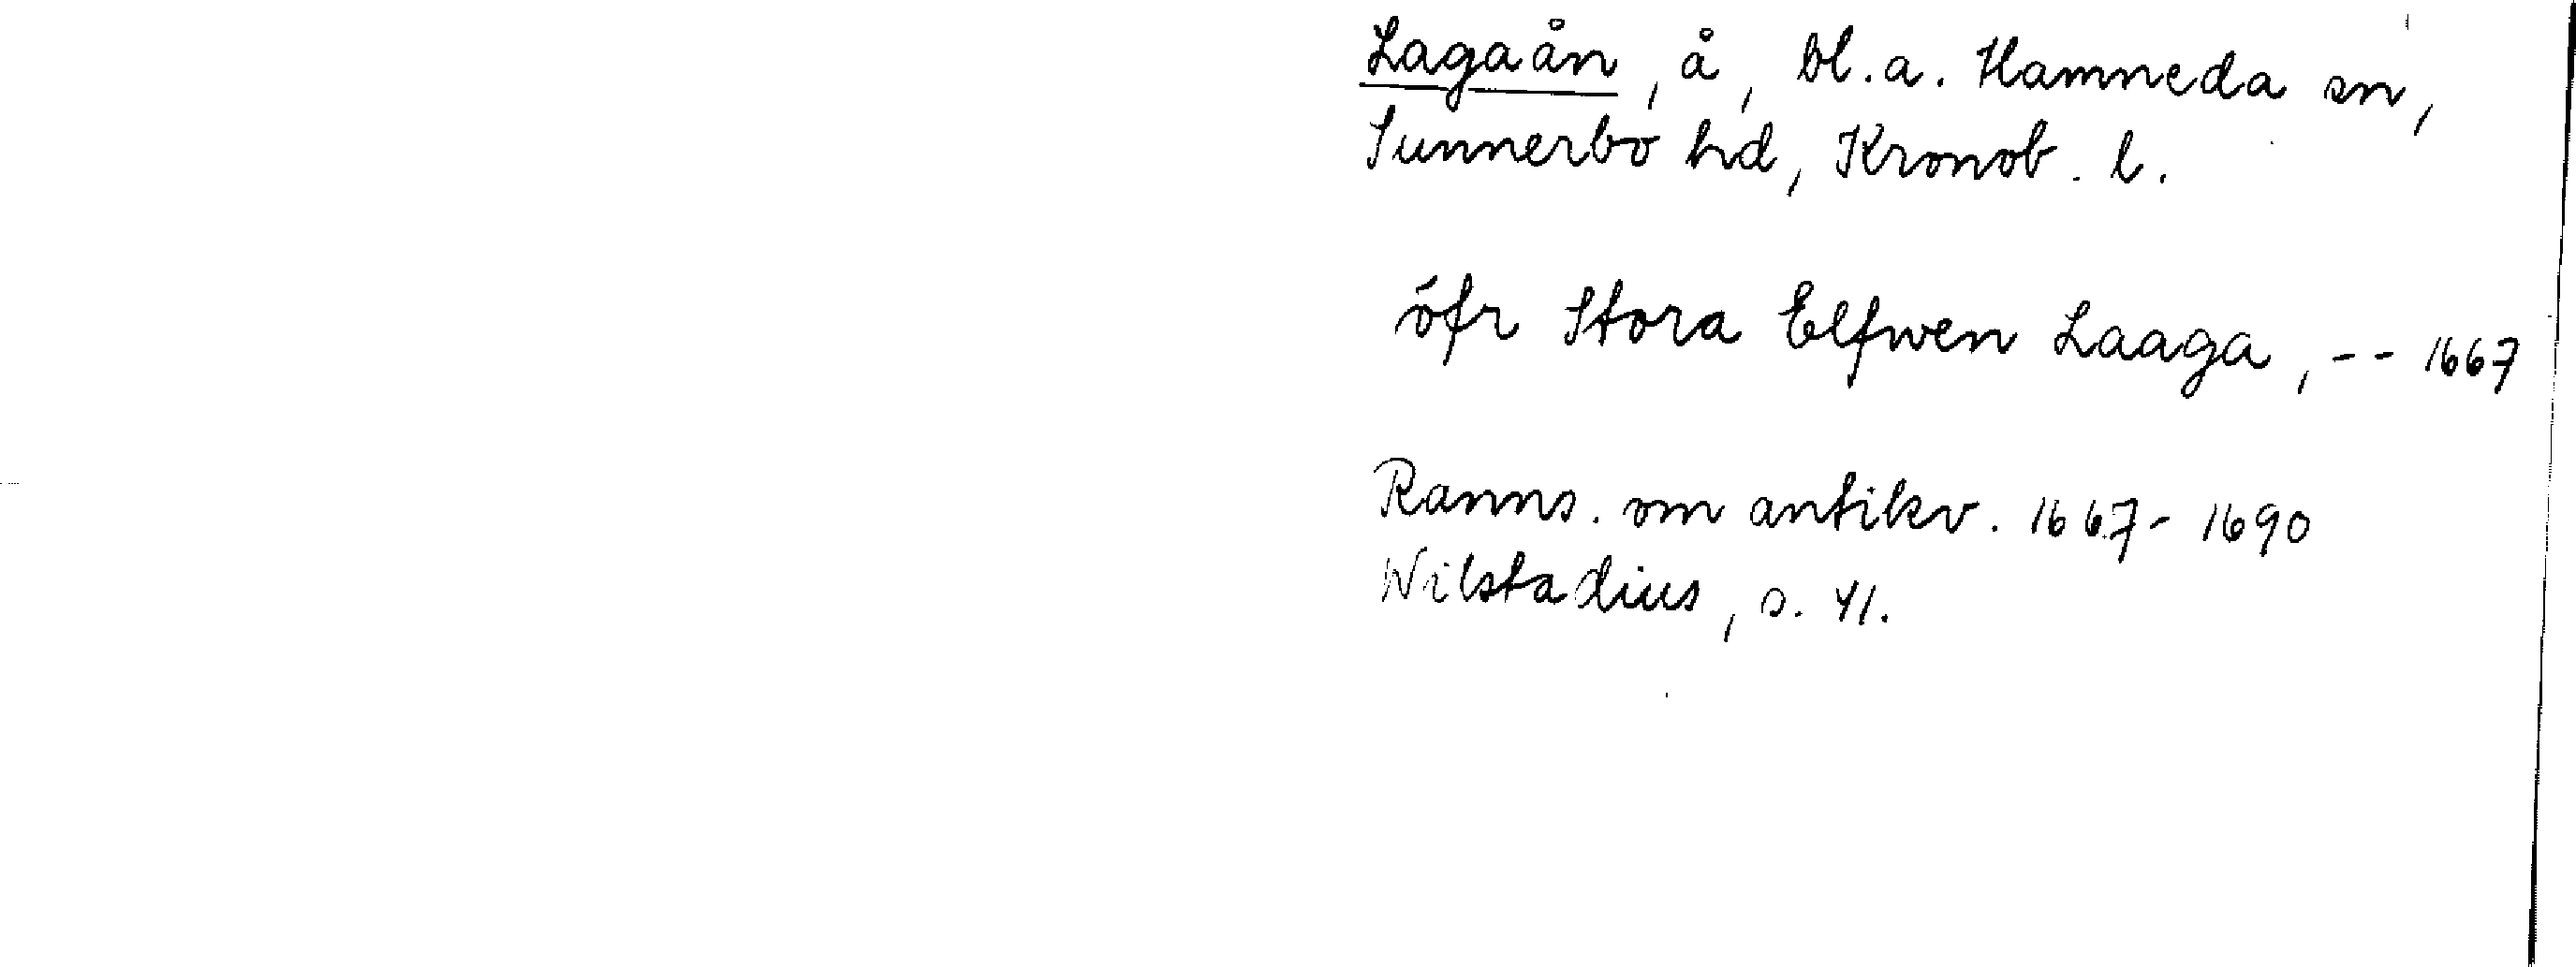 Lagaån, å, bl.a. Hamneda sn,
Sunnerbo hd, Kronob. l.
öfr Stora Elfwen Laaga, -- 1667
Ranns. om antikv. 1667- 1690
Wilstadius, s. 41.